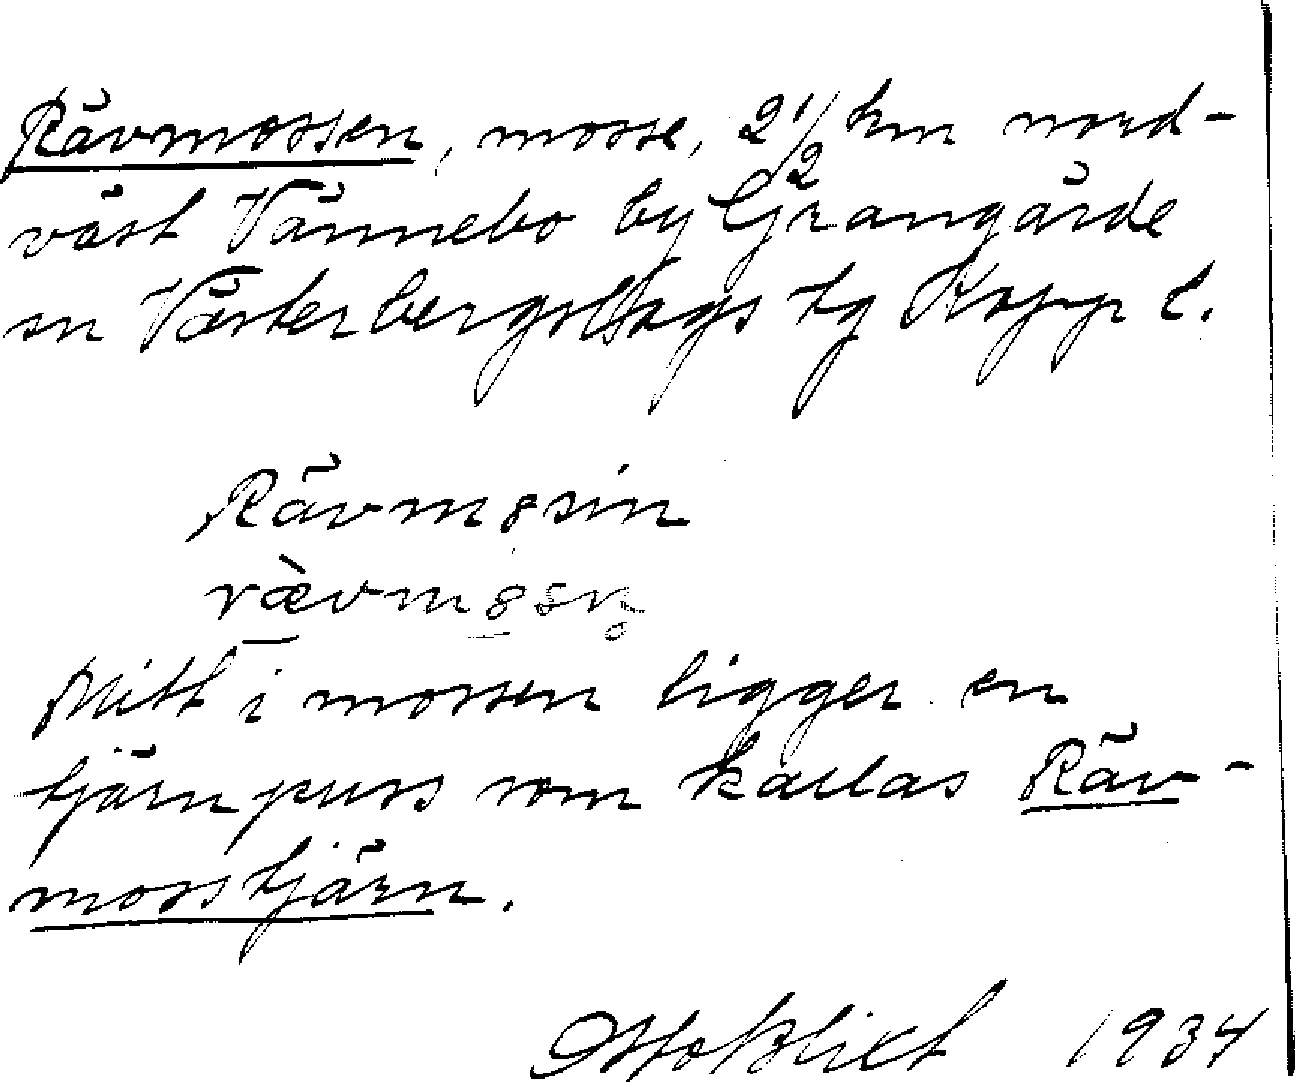 Rävmossen, mosse, 2 1/2 km nord-
väst Vännebo by Grangärde
sn Västerbergslags tg Kopp l.
Rävmosin
Mitt i mossen ligger en
tjärnpuss som kallas Räv-
mosstjärn.
Otto Blixt 1934